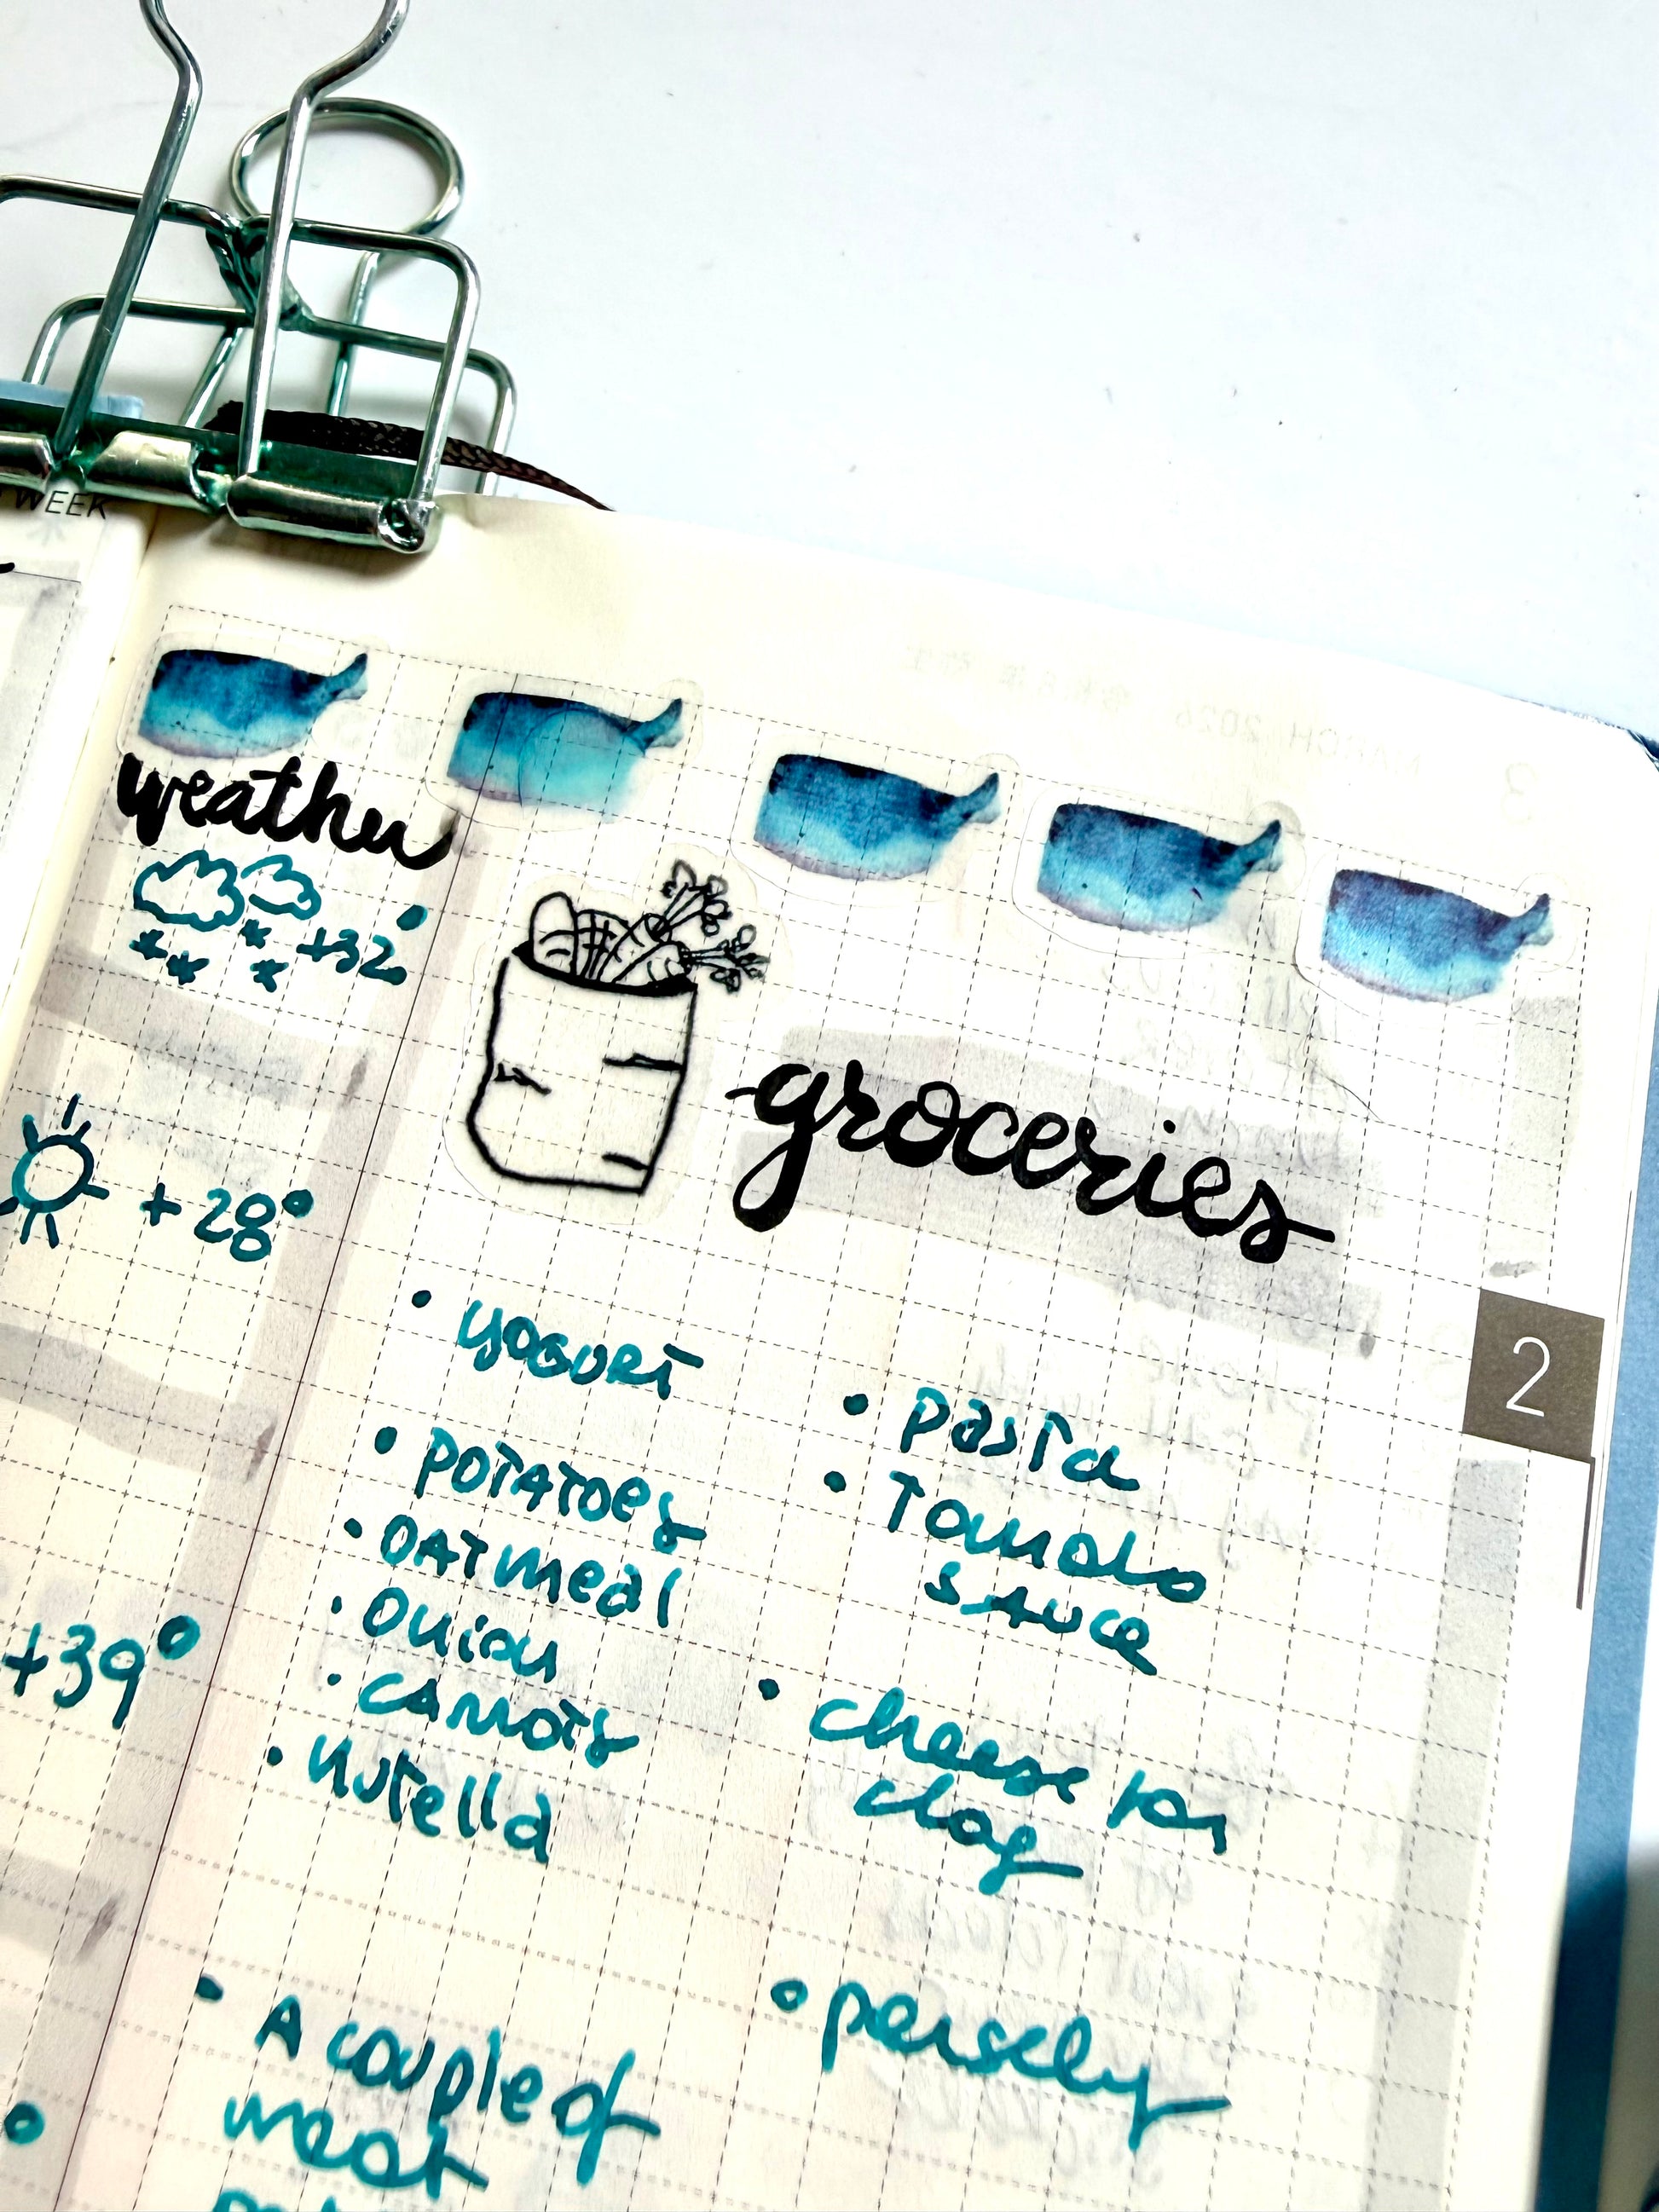 WEEK
weather
+32°
+28°
+39°
groceries
2
• yogurt
• POTATOES
• OATmeal
• Onion
• carrots
• Nutella
• A couple of
meat
• pasta
• Tomato
sauce
• cheese for
• persely